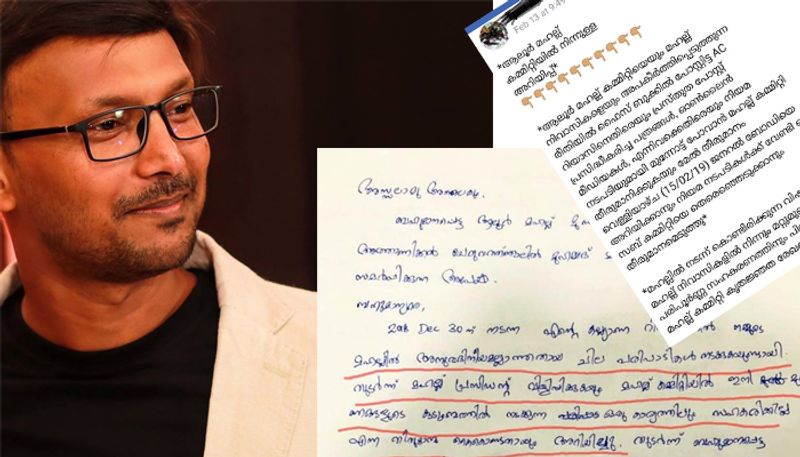 Feb 13 at 9:49
*ആലൂർ മഹല്ല്
കമ്മിറ്റിയിൽ നിന്നുള്ള
അറിയിപ്പ്*
*ആലൂർ മഹല്ല് കമ്മിറ്റിയെയും മഹല്ല്
നിവാസികളെയും അപകീർത്തിപ്പെടുത്തുന്ന
രീതിയിൽ ഫൈസ് ബുക്കിൽ പോസ്റ്റിട്ട AC
റിയാസിനെതിരെയും പ്രസ്തുത പോസ്റ്റ്
പ്രസിദ്ധീകരിച്ച പത്രങ്ങൾ, ഓൺലൈൻ
മീഡിയകൾ, എന്നിവക്കെതിരെയും നിയമ
നടപടിയുമായി മുന്നോട്ട് പോവാൻ മഹല്ല് കമ്മിറ്റി
തീരുമാനിക്കുകയും മേൽ തീരുമാനം
വെള്ളിയാഴ്ച (15/02/19) ജനറൽ ബോഡിയെ
അറിയിക്കാനും നിയമ നടപടികൾക്ക് വേണ്ടി
സബ് കമ്മിറ്റിയെ തെരെഞ്ഞെടുക്കാനും
തീരുമാനമെടുത്തു*
*മഹല്ലിൽ നടന്ന് കൊണ്ടിരിക്കുന്ന
മഹല്ല് നിവാസികളിൽ നിന്നും
പരിപൂർണ്ണ സഹകരണത്തിനും
മഹല്ല് കമ്മിറ്റി കൃതജ്ഞത
അസ്സലാമു അലൈക്കും.
ബഹുമാനപ്പെട്ട ആലൂർ മഹല്ല്
അത്തൂനിക്കൽ
സമർപ്പിക്കുന്ന അപേക്ഷ
ബഹുമാന്യരെ,
2018 Dec 30 ന് നടന്ന എന്റെ കല്യാണ നമ്മുടെ
മഹല്ലിൽ അനുവദിനീയമല്ലാത്തതായ ചില പരിപാടികൾ നടക്കുകയുണ്ടായി.
തുടർന്ന് മഹല്ല് പ്രസിഡന്റ് വിളിപ്പിക്കുകയും മഹല്ല് കമ്മിറ്റിയിൽ ഇനി
ഞങ്ങളുടെ കുടുംബത്തിൽ നടക്കുന്ന ഒരു കാര്യത്തിലും സഹകരിക്കില്ല
എന്ന തീരുമാനം കൈകൊണ്ടതായും അറിയിച്ചു. തുടർന്ന് ബഹുമാനപ്പെട്ട